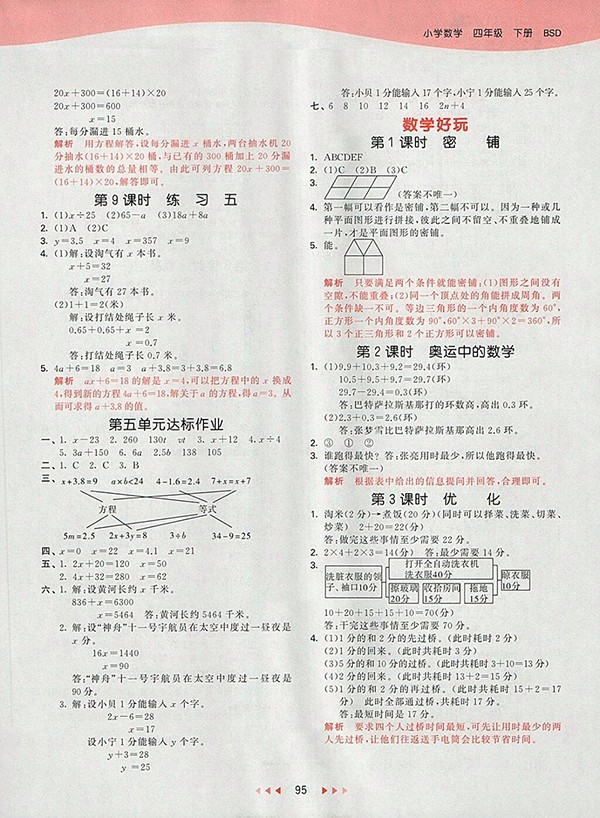 小学数学 四年级 下册 BSD
20x+300=(16+14)×20
20x+300=600
x=15
答:每分漏进15桶水。
解析 用方程解答,设每分漏进x桶水,两台抽水机20
分抽水(16+14)×20桶,与已有的300桶加上20分漏
进水的桶数的总量相等。由此可列方程20x+300=
(16+14)×20,解答即可。
第9课时 练习五
1. (1)x÷25 (2)65-a (3)18a+8a
2. (1)A (2)C
3. y=3.5 x=4 x=357 x=9
4. (1)解:设淘气有x本书。
x+5=32
x=27
答:淘气有27本书。
(2)1+1=2(米)
解:设打结处绳子长x米。
0.65+0.65+x=2
x=0.7
答:打结处绳子长0.7米。
5. 4a+6=18 a=3 a+3.8=3+3.8=6.8
解析 ax+6=18的解是x=4,可以把方程中的x换成
4,得到新的方程4a+6=18,解关于a的方程,得a=3。从
而可求得a+3.8的值。
第五单元达标作业
一、1. x-23 2. 260 130t vt 3. x+12 4. x÷4
5. 3a+150 6. 6a 2.5b 138 105
二、1. C 2. C 3. B
三、x+3.8=9 a×b<24 4-1.6=2.4 7+x=x+7
方程 等式
5m=2.5 2x+3y=8 3÷b 34-9=25
四、x=0 x=22 x=4.1 x=21
五、1. 2x+20=120 x=50
2. 4x+32=280 x=62
六、1. 解:设黄河长约x千米。
836+x=6300
x=5464 答:黄河长约5464千米。
2. 解:设“神舟”十一号宇航员在太空中度过一昼夜是
x分。
16x=1440
x=90
答:“神舟”十一号宇航员在太空中度过一昼夜是
90分。
3. 解:设小贝1分能输入x个字。
2x-6=28
x=17
设小宁1分能输入y个字。
y+3=28
y=25
答:小贝1分能输入17个字,小宁1分能输入25个字。
七、6 8 10 12 14 16 2n+4
数学好玩
第1课时 密铺
1. ABCDEF
2. (1)C (2)B (3)C
3.
(答案不唯一)
4. 第一幅可以看作是密铺,第二幅不可以。因为一种或几
种平面图形进行拼接,彼此之间不留空、不重叠地铺成
一片,才是平面图形的密铺。
5. 能。
解析 只要满足两个条件就能密铺:(1)图形之间没有
空隙,不能重叠;(2)同一个顶点处的角能拼成周角。两
个条件缺一不可。等边三角形的一个内角度数为60°,
正方形一个内角度数为90°,60°×3+90°×2=360°,所
以3个正三角形和2个正方形可以密铺。
第2课时 奥运中的数学
1. (1)9.9+10.3+9.2=29.4(环)
10.5+9.5+9.7=29.7(环)
29.7-29.4=0.3(环)
答:巴特萨拉斯基那打的环数高,高出0.3环。
(2)2.6环
答:张梦雪比巴特萨拉斯基那高出2.6环。
2. ③ ① ②
3. 谁跑得最快?答:张亮用时最少,所以他跑得最快。
(答案不唯一)
解析 根据表中给出的信息提问并回答,合理即可。
第3课时 优化
1. 淘米(2分)→煮饭(20分)(同时可以择菜、洗菜、切菜、
炒菜) 2+20=22(分)
答:做完这些事情至少需要22分。
2. 2×4+2×3=14(分) 答:最少需要14分。
3.
洗脏衣服的领
子、袖口10分
打开全自动洗衣机
洗衣服40分
擦玻璃
20分
收拾房间
15分
拖地
15分
晾衣服
10分
10+20+15+15+10=70(分)
答:干完这些事情至少需要70分。
4. (1)1分的和2分的先过桥。(此时耗时2分)
(2)1分的回来。(此时共耗时3分)
(3)5分的和10分的过桥。(此时共耗时3+10=13分)
(4)2分的回来。(此时共耗时13+2=15分)
(5)1分的和2分的再过桥。(此时共耗时15+2=17
分) 此时全部通过桥,共耗时17分。
答:最短时间是17分。
解析 要求四个人过桥时间最短,可先让用时最少的两
人先过桥,让他们往返送手电筒会比较节省时间。
95